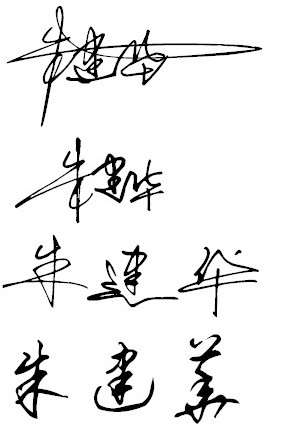 朱建华
朱建华
朱建华
朱建華